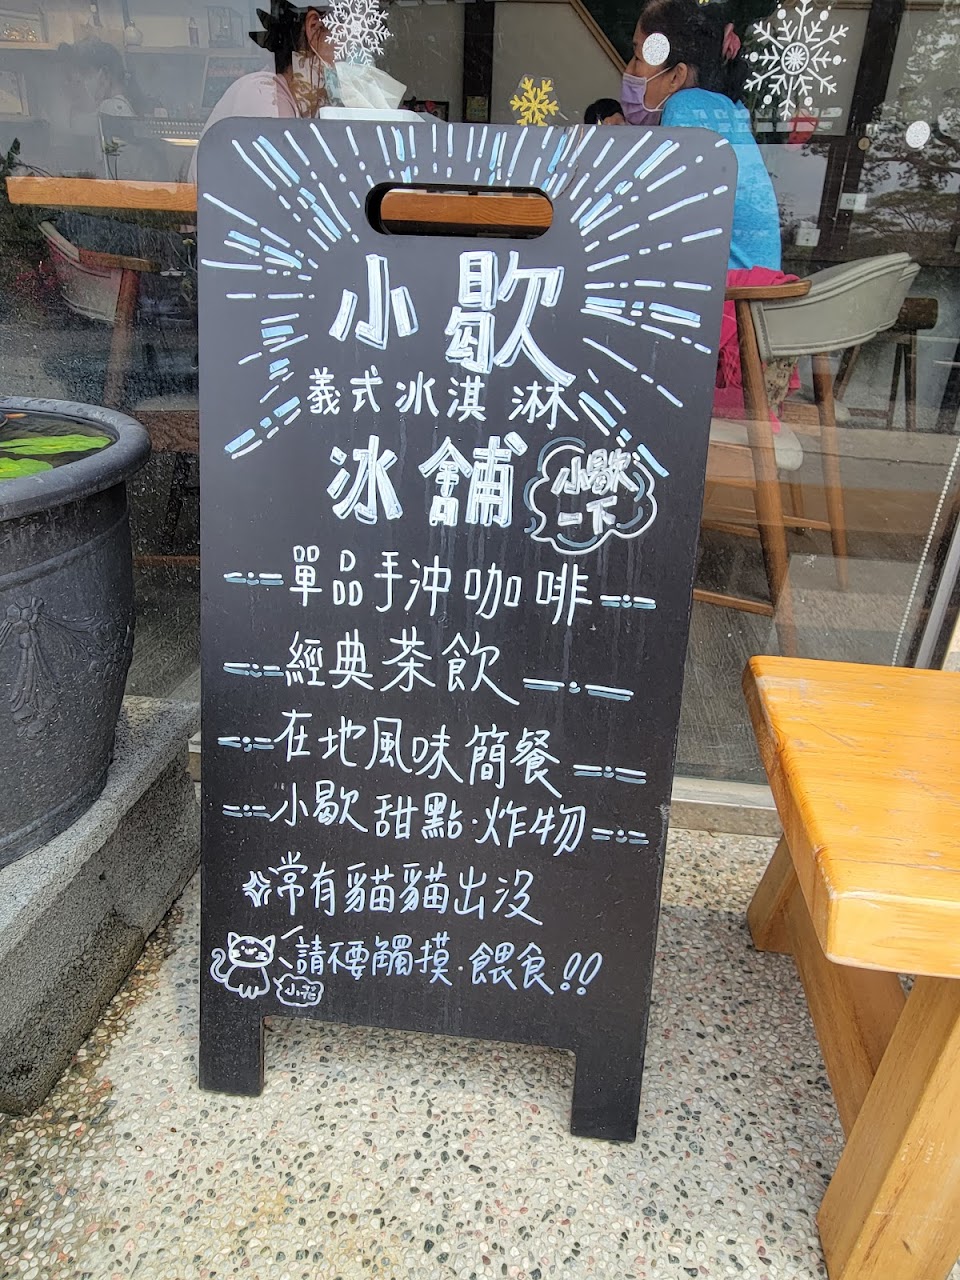 小歇
義式冰淇淋
冰舖
小歇
一下
單品手沖咖啡
經典茶飲
在地風味簡餐
小歇甜點·炸物
常有貓貓出沒
請不要觸摸·餵食!!
小花